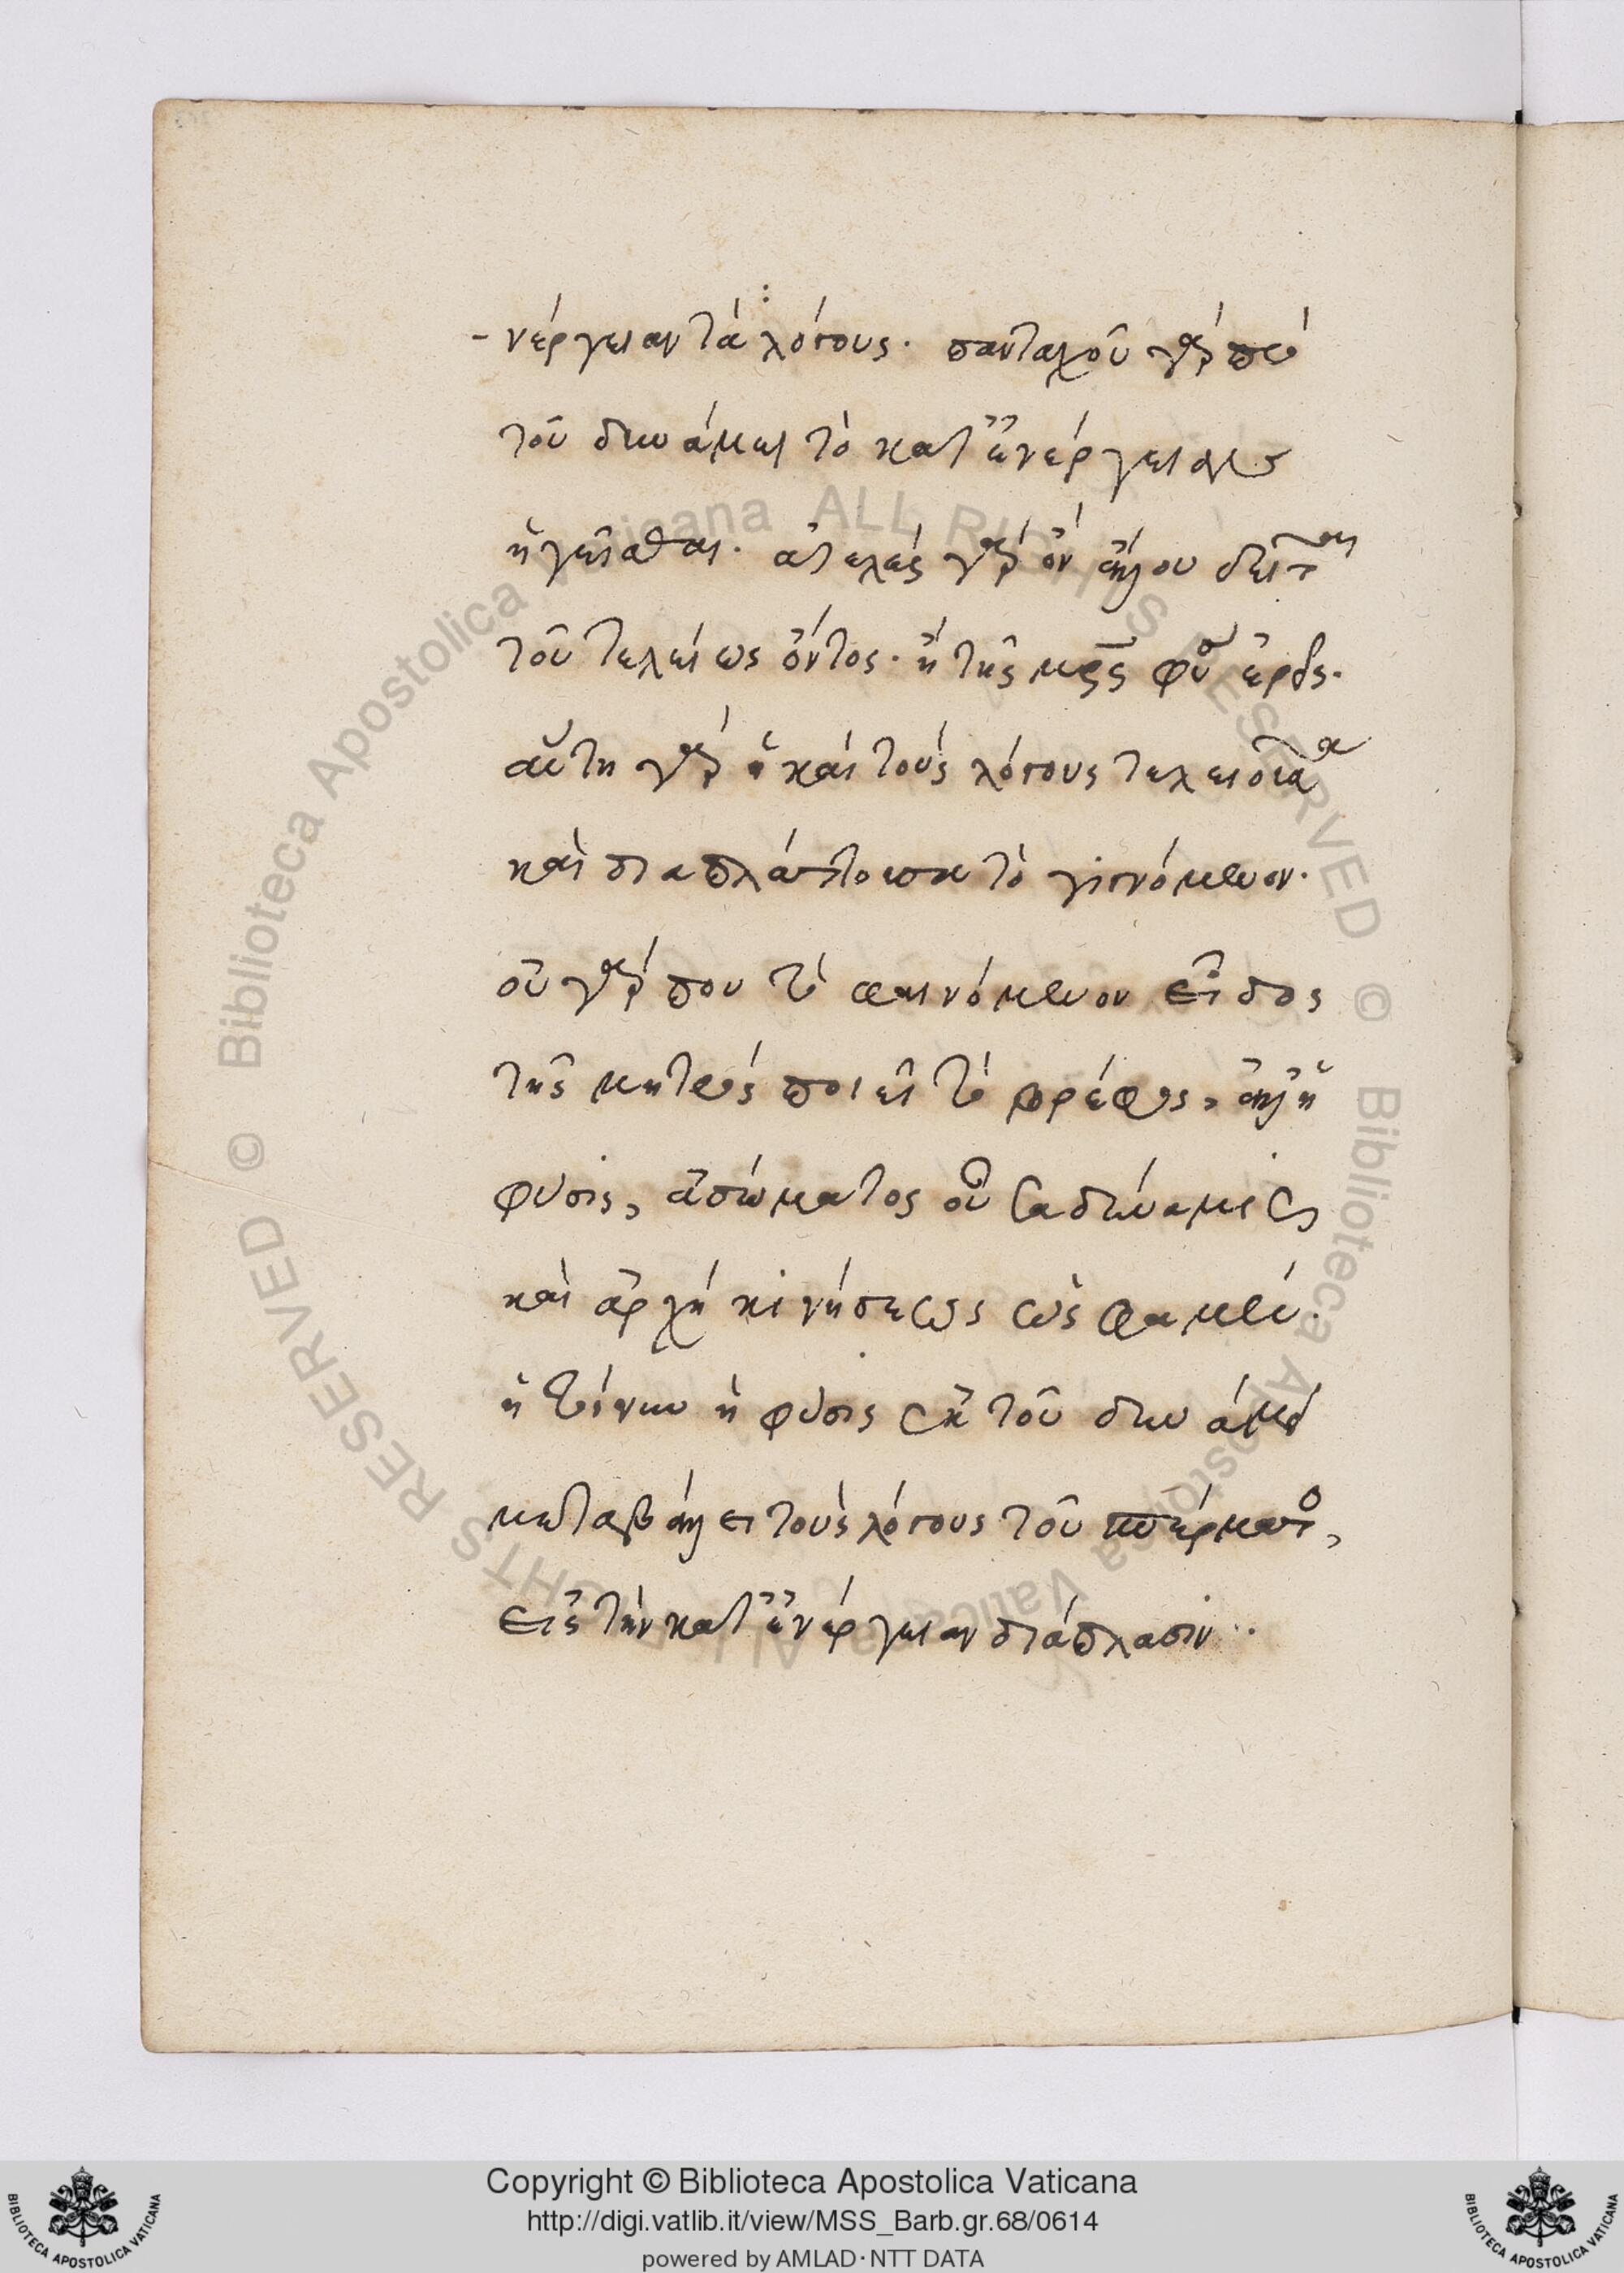 -νέργειαν τὰ λόγους. πανταχοῦ γὰρ πρὸ
τοῦ δυνάμει τὸ κατ' ἐνέργειαν
ἡγεῖσθαι. ἀτελὲς γὰρ ὂν ἄλλου δεῖται
τοῦ τελείως ὄντος. ἡ τῆς μρ̅ς φύ
αὕτη γὰρ ἡ καὶ τοὺς λόγους τελειοῦσα
καὶ διαπλάττουσα τὸ γιγνόμενον.
οὐ γάρ που τὸ φαινόμενον εἶδος
τῆς μητρὸς ποιεῖ τὸ βρέφος, ἀλλ' ἡ
φύσις, ἀσώματος οὖσα δύναμις
καὶ ἀρχὴ κινήσεως ὥς φαμεν.
ἡ τοίνυν ἡ φύσις ἐκ τοῦ δυνάμει
μεταβάλλει τοὺς λόγους τοῦ σπέρματο,
εἰς τὴν κατ' ἐνέργειαν διάπλασιν..
Copyright © Biblioteca Apostolica Vaticana
http://digi.vatlib.it/view/MSS_Barb.gr.68/0614
powered by AMLAD·NTT DATA
BIBLIOTECA APOSTOLICA VATICANA
BIBLIOTECA APOSTOLICA VATICANA
© Biblioteca Apostolica Vaticana ALL RIGHTS RESERVED
© Biblioteca Apostolica Vaticana ALL RIGHTS RESERVED